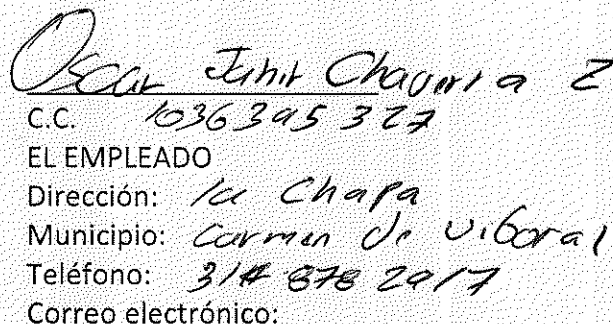 Oscar Janir Chaverra Z
C.C. 1036395327
EL EMPLEADO
Dirección: la Chapa
Municipio: Carmen de Viboral
Teléfono: 314 878 2917
Correo electrónico: